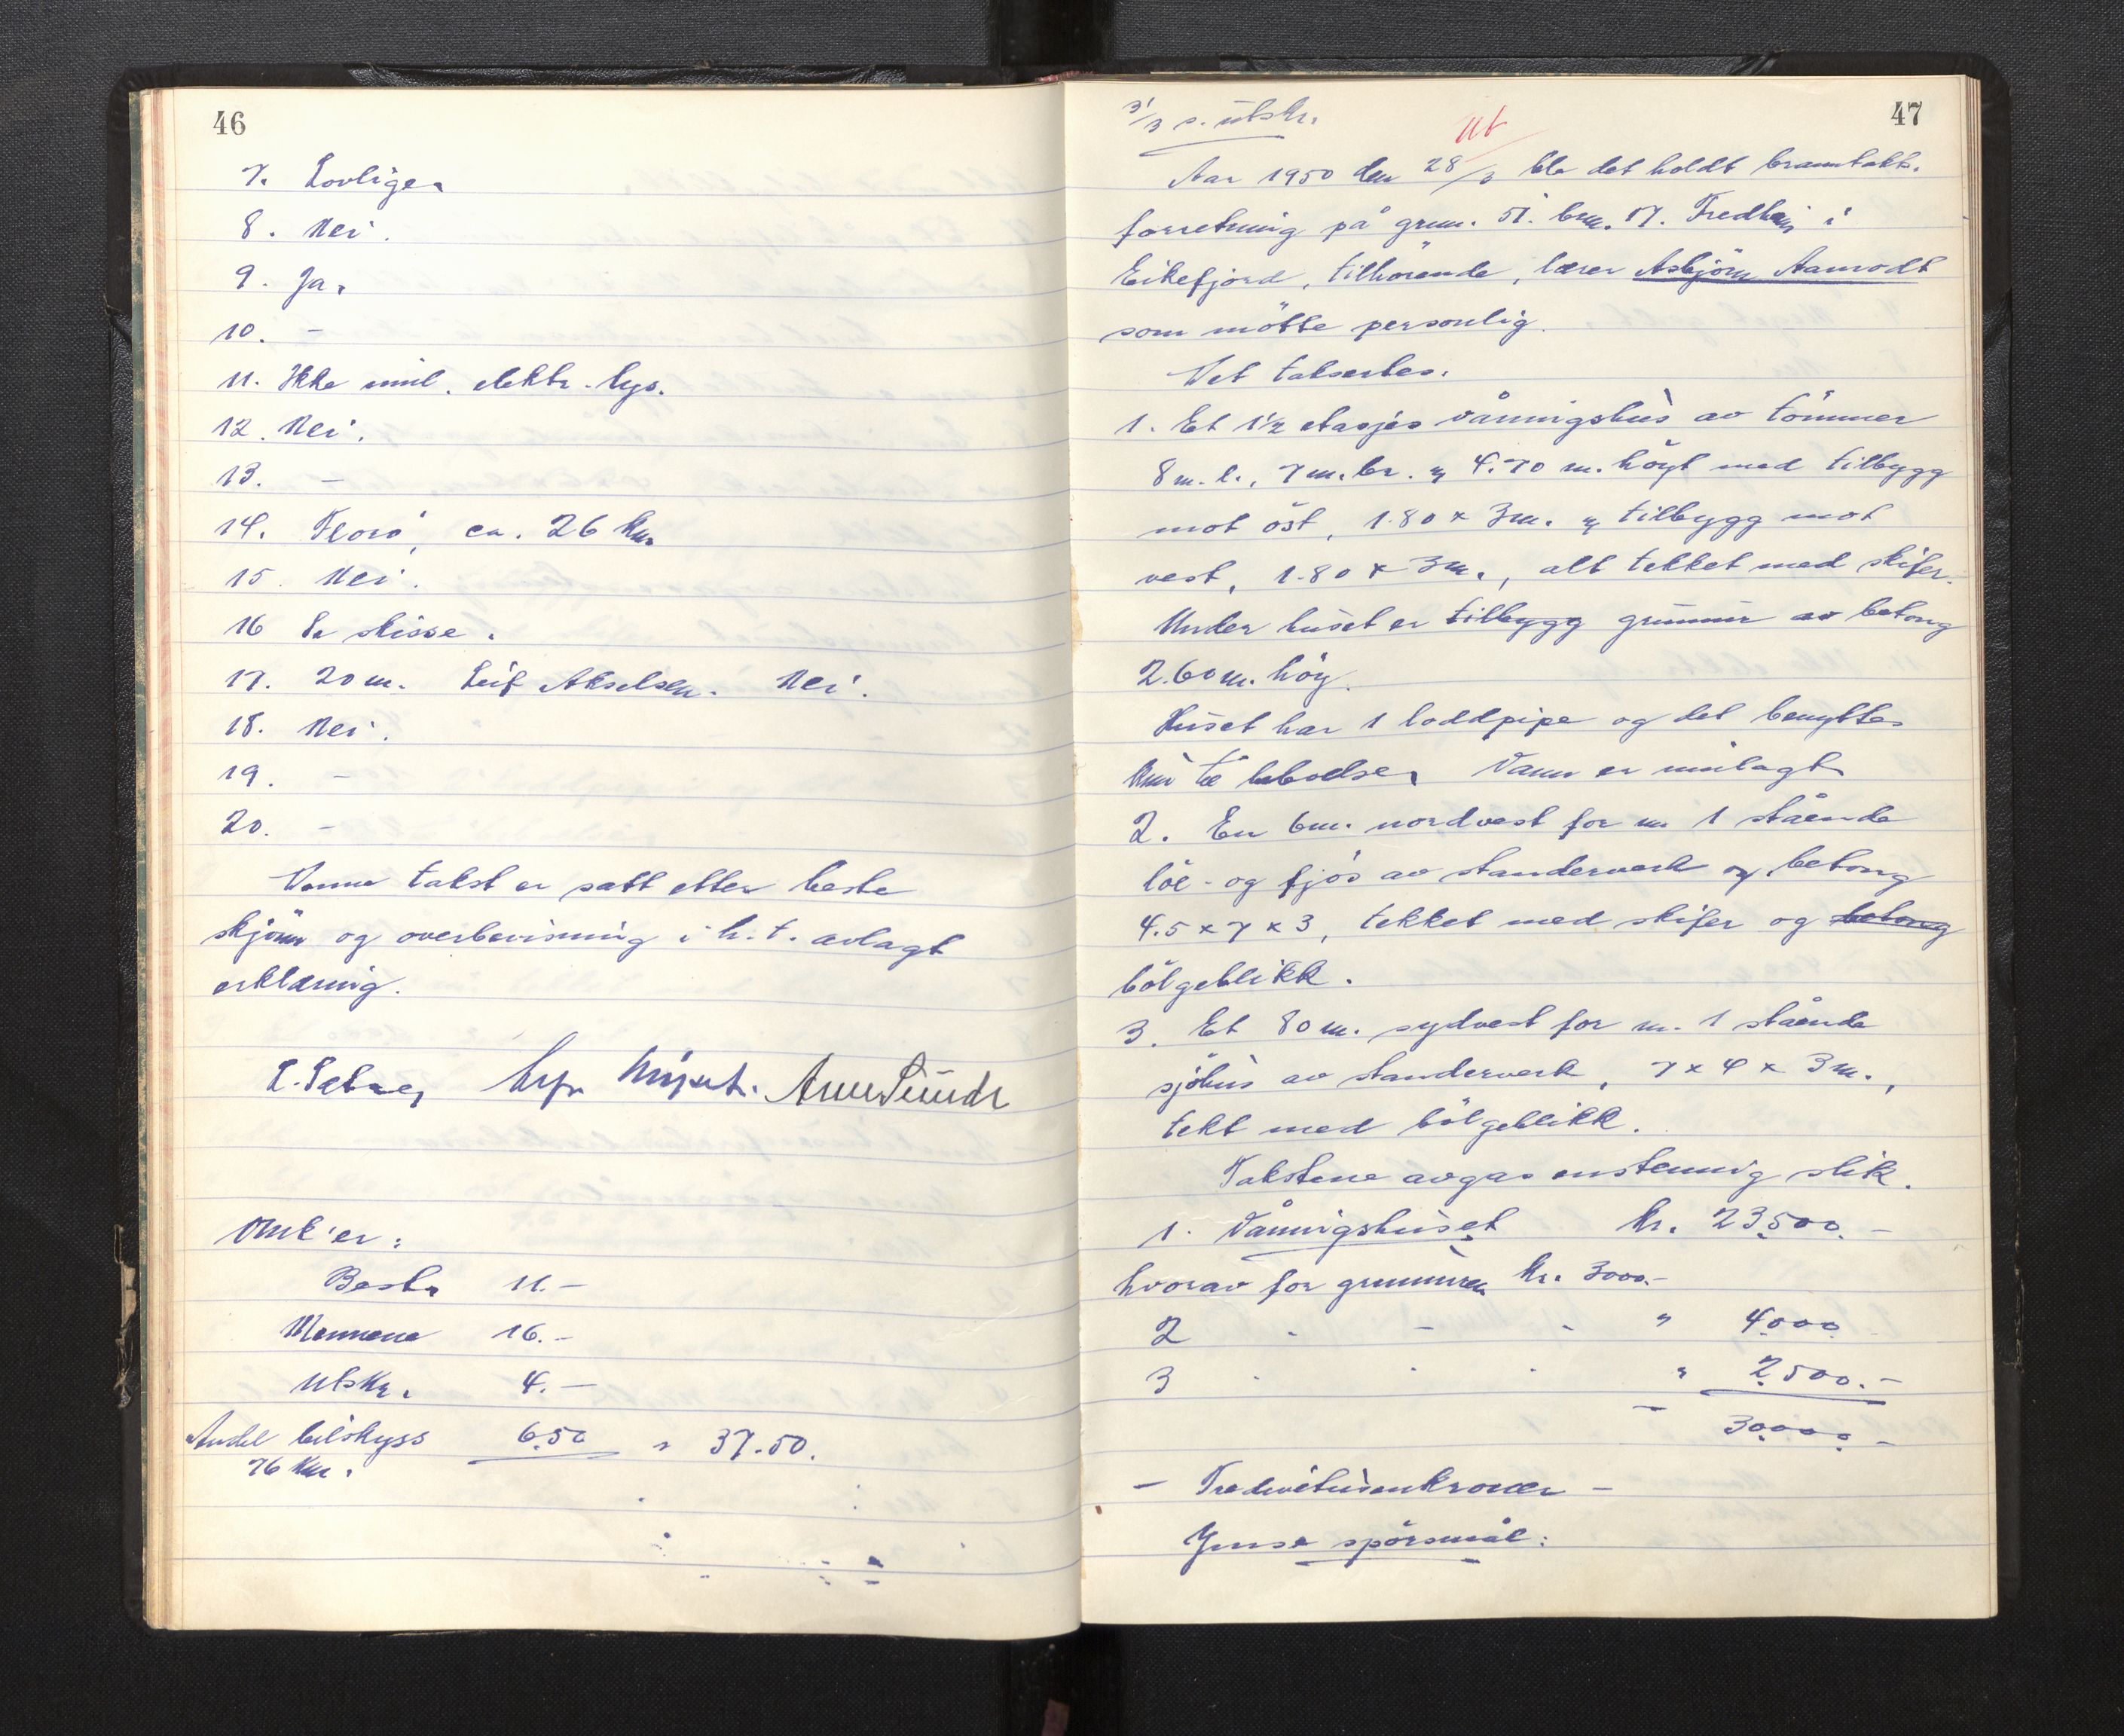 46
7. Lovlige.
8. Nei.
9. Ja.
10. -
11. Ikke innl. elektr. lys.
12. Nei.
13. -
14. Florö, ca. 26 km.
15. Nei.
16 Se skisse.
17. 20 m. Leif Akselsen. Nei.
18. Nei.
19. -
20. -
Denne takst er satt etter beste
skjönn og overbevisning i h.t. avlagt
erklæring.
Arne
Omk'er:
Best. 11.-
Mennene 16.-
Utskr. 4.-
Andel bilskyss 6.50 " 37.50.
76 km.
47
31/3 s. utskr.
Ut
Aar 1950 den 28/3 ble det holdt branntakst-
forretning på grnr. 51. brnr. 17. Fredheim i
Eikefjord, tilhörende, lærer Asbjörn Aamodt
som mötte personlig.
Det taksertes.
1. Et 1½ etasjes våningshus av tömmer
8 m. l., 7 m. br. og 4.70 m. höyt med tilbygg
mot öst, 1.80 x 3 m. og tilbygg mot
vest, 1.80 x 3 m., alt tekket med skifer.
Under huset er tilbygg grunnmur av betong
2.60 m. höy.
Huset har 1 loddpipe og det benyttes
kun til beboelse. Vann er innlagt.
2. En 6 m. nordvest for nr. 1 stående
löe- og fjös av standerverk og betong
4.5 x 7 x 3, tekket med skifer og betong
bölgeblikk.
3. Et 80 m. sydvest for nr. 1 stående
sjöhus av standerverk, 7 x 4 x 3 m.,
tekt med bölgeblikk.
Takstene avgas enstemmig slik.
1. Våningshuset kr. 23500.-
hvorav for grunnmuren kr. 3000.-
2 - - - " 4000
3 - - - " 2500.-
30000.-
- Tredivetusenkroner -
Ymse spörsmål: